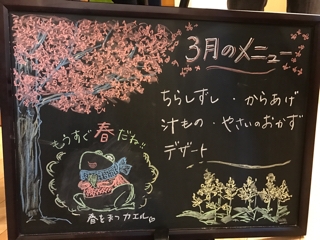 3月のメニュー
ちらしずし・からあげ
汁もの・やさいのおかず
デザート
もうすぐ春だね!!
春をまつカエル